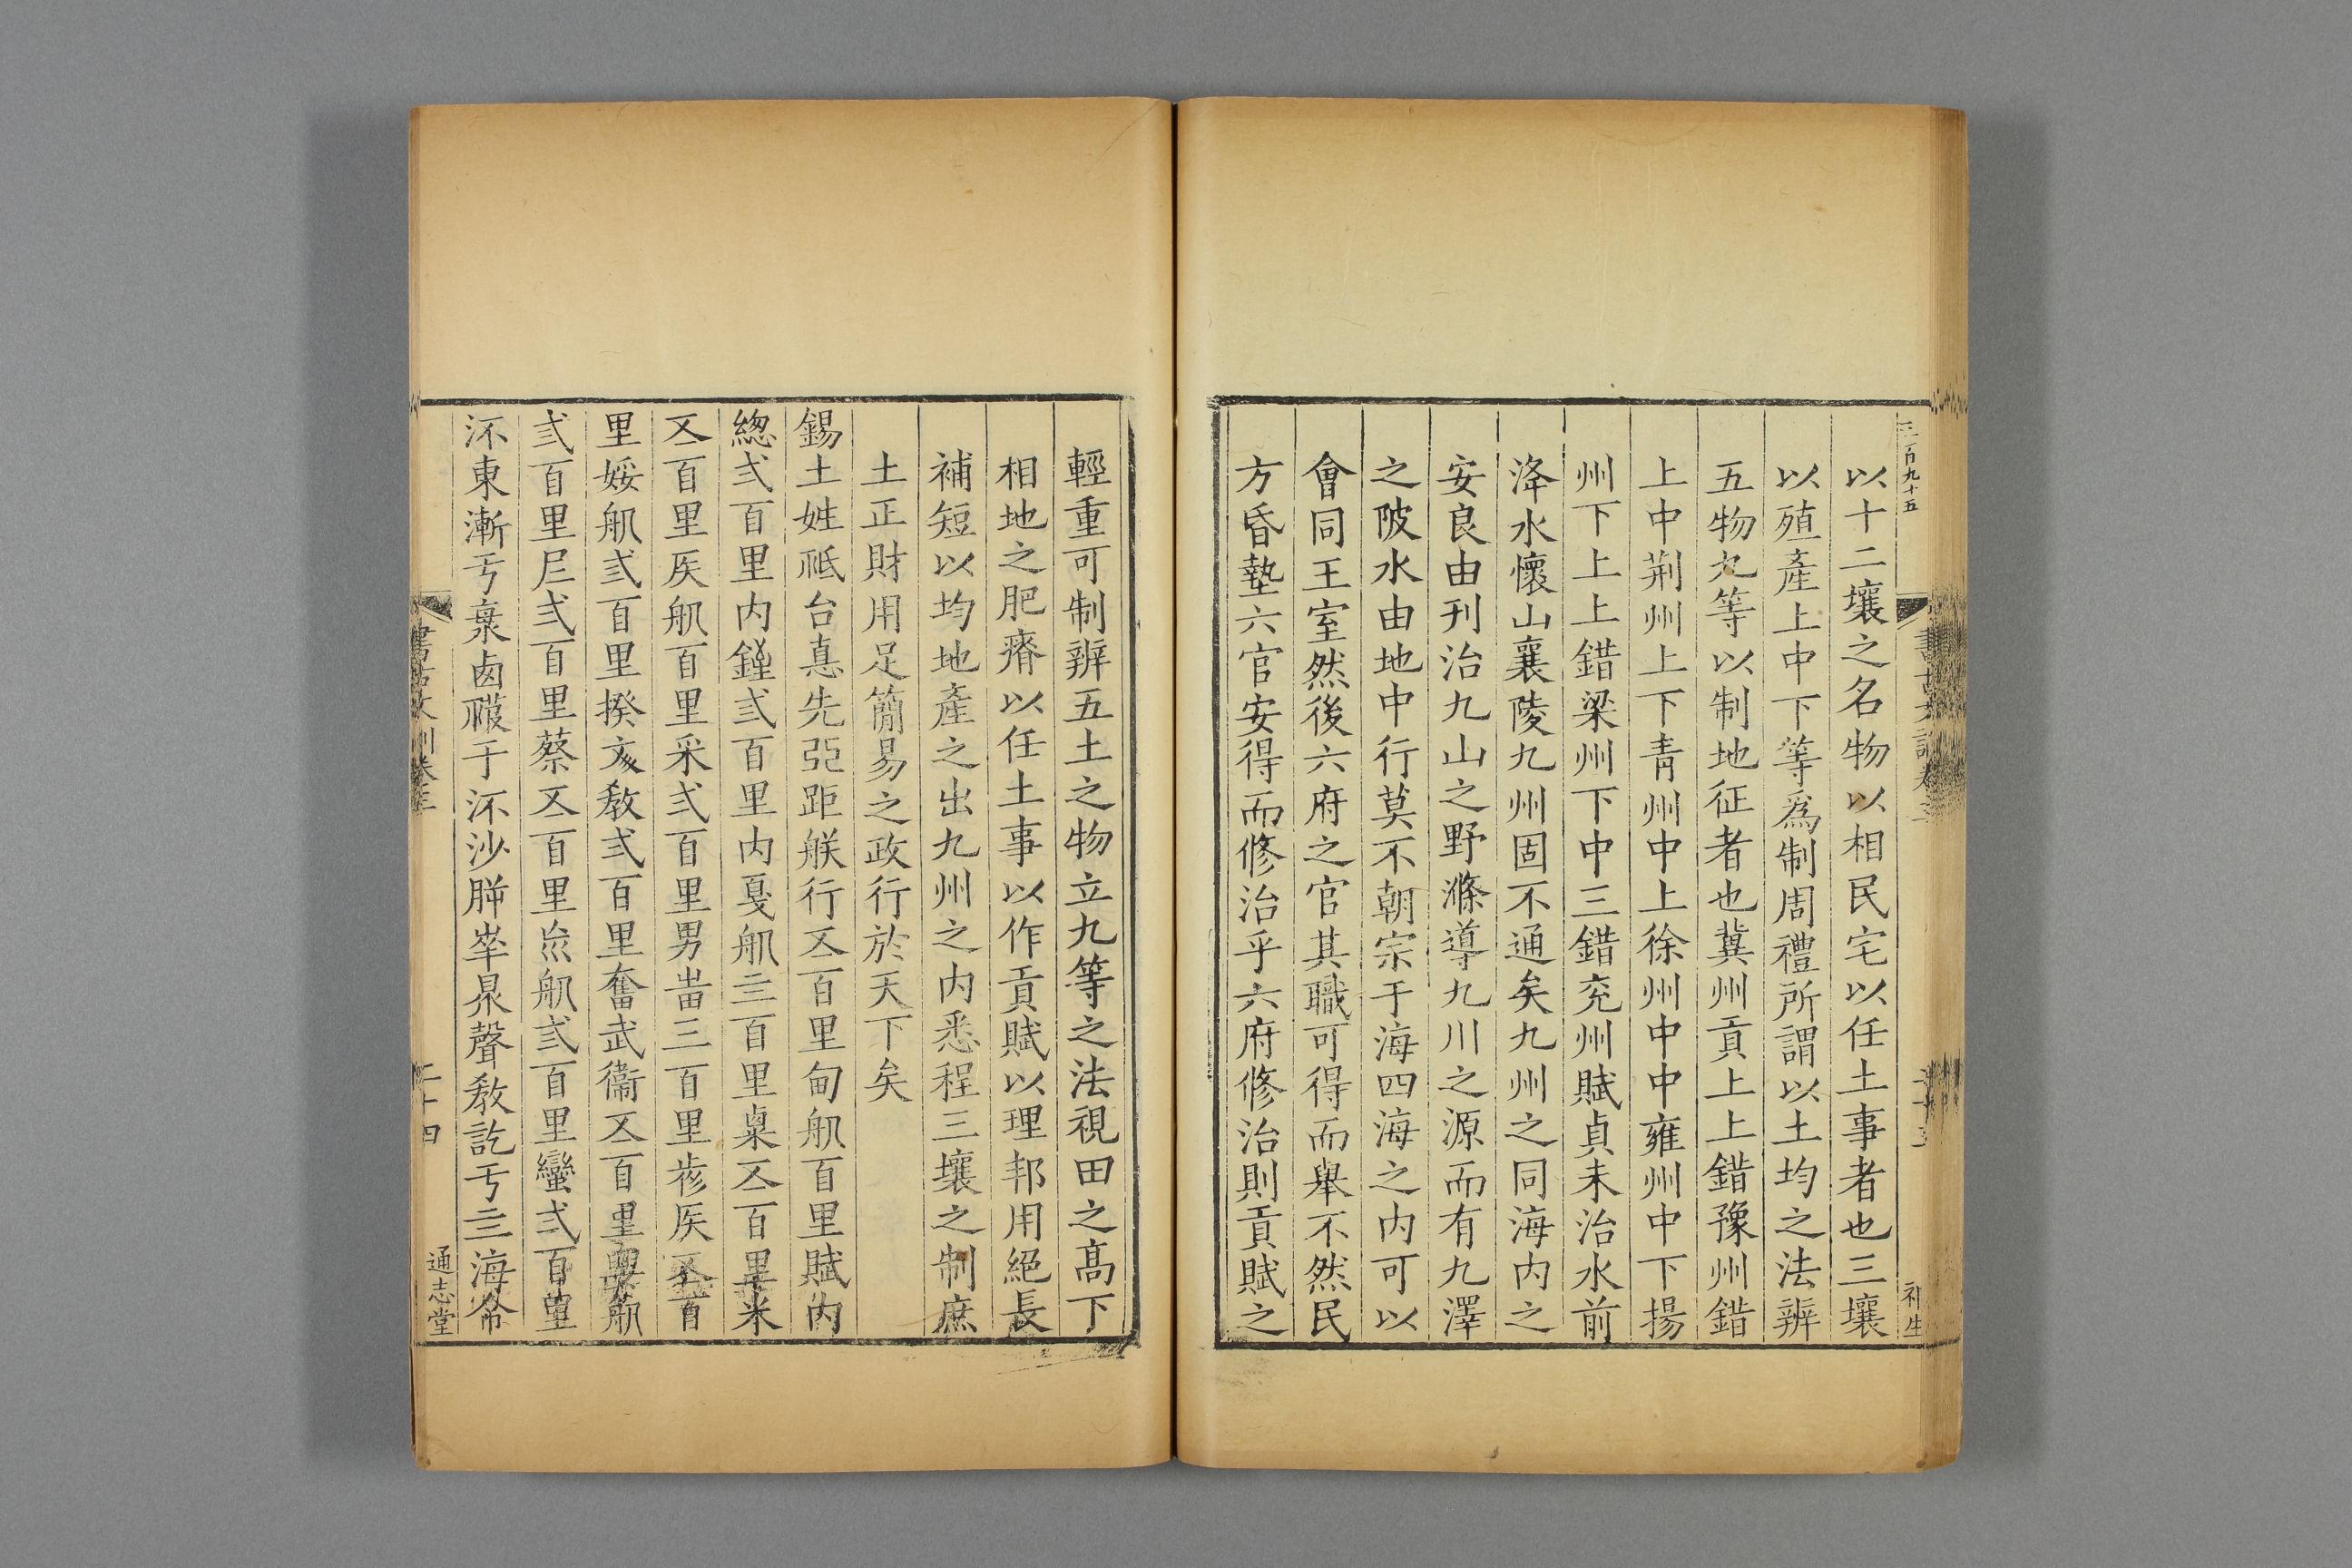 三百九十五
以十二壤之名物以相民宅以任土事者也三壤
以殖產上中下等爲制周禮所謂以土均之法辨
五物九等以制地征者也冀州貢上上錯豫州錯
上中荆州上下青州中上徐州中中雍州中下揚
州下上上錯梁州下中三錯兖州賦貞未治水前
洚水懷山襄陵九州固不通矣九州之同海内之
安良由刊治九山之野滌導九川之源而有九澤
之陂水由地中行莫不朝宗于海四海之内可以
會同王室然後六府之官其職可得而舉不然民
方昏墊六官安得而修治乎六府修治則貢賦之
輕重可制辨五土之物立九等之法視田之高下
相地之肥瘠以任土事以作貢賦以理邦用絕長
補短以均地產之出九州之内悉程三壤之制庶
土正財用足簡易之政行於天下矣
錫土姓祗台惪先亞距躾行㐅百里甸舤百里賦内
緫弍百里内銍弍百里内戛舤亖百里粟㐅百里米
㐅百里矦舤百里采弍百里男𤰕三百里矦㐅百
里綏舤弍百里揆文教弍百里奮武衞㐅百里舤
弍百里𡰥弍百里蔡㐅百里舤弍百里蠻弍百里
㳅東漸亐㐮卤襹于㳅沙朔㚔泉聲教訖亐亖海命
書古文訓卷三
二十四
通志堂